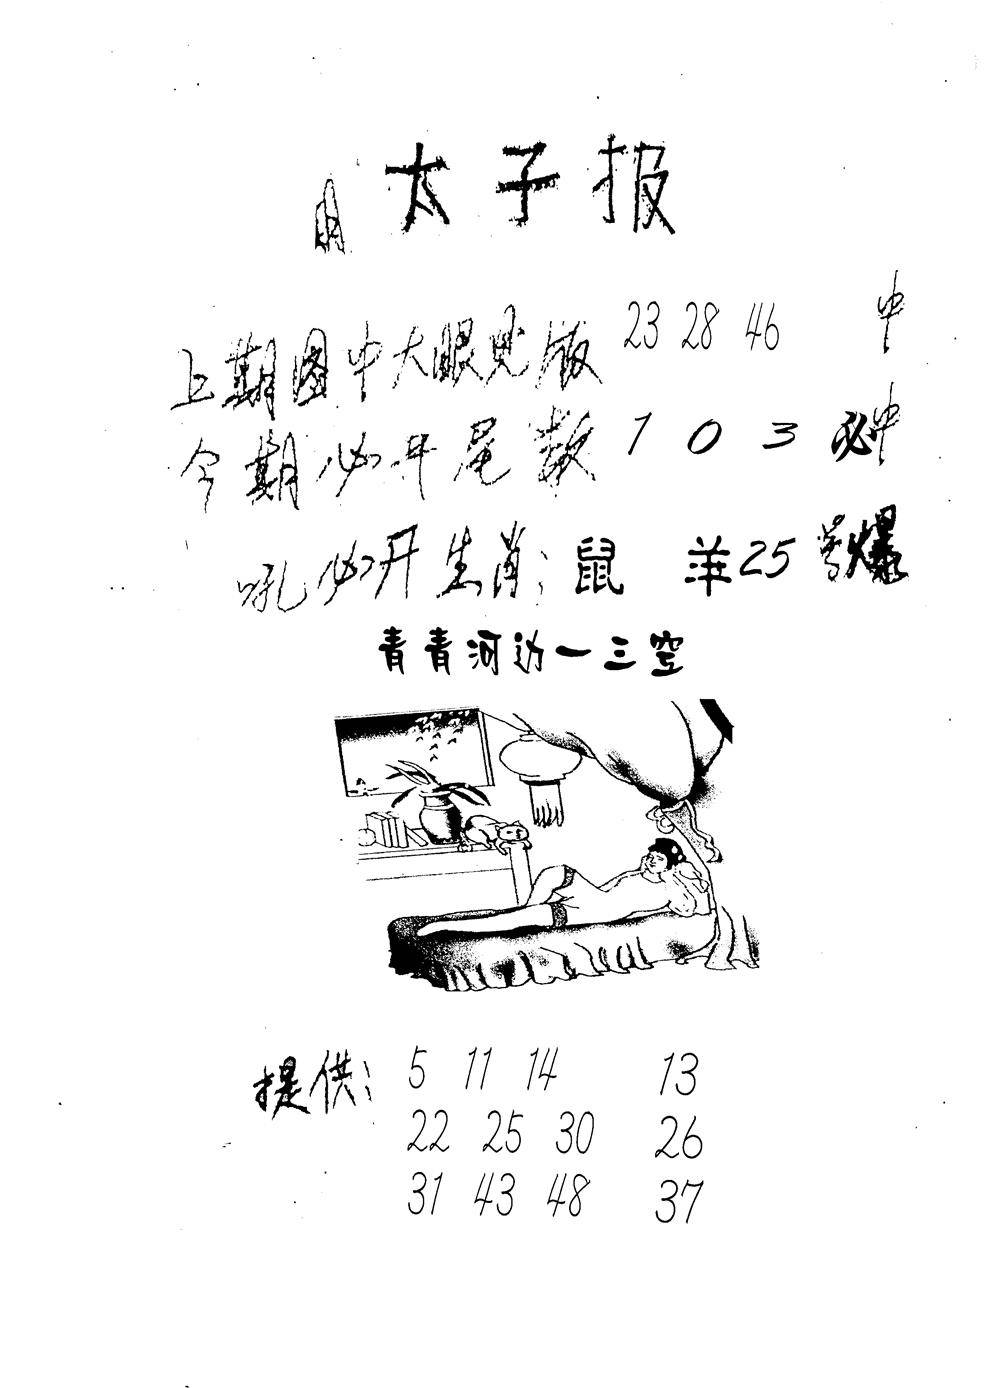 太子报
上期图中大眼见版 23 28 46 中
今期必开尾数 1 0 3 必中
必开生肖: 鼠 羊 25 号爆
青青河边一三空
提供: 5 11 14 13
22 25 30 26
31 43 48 37